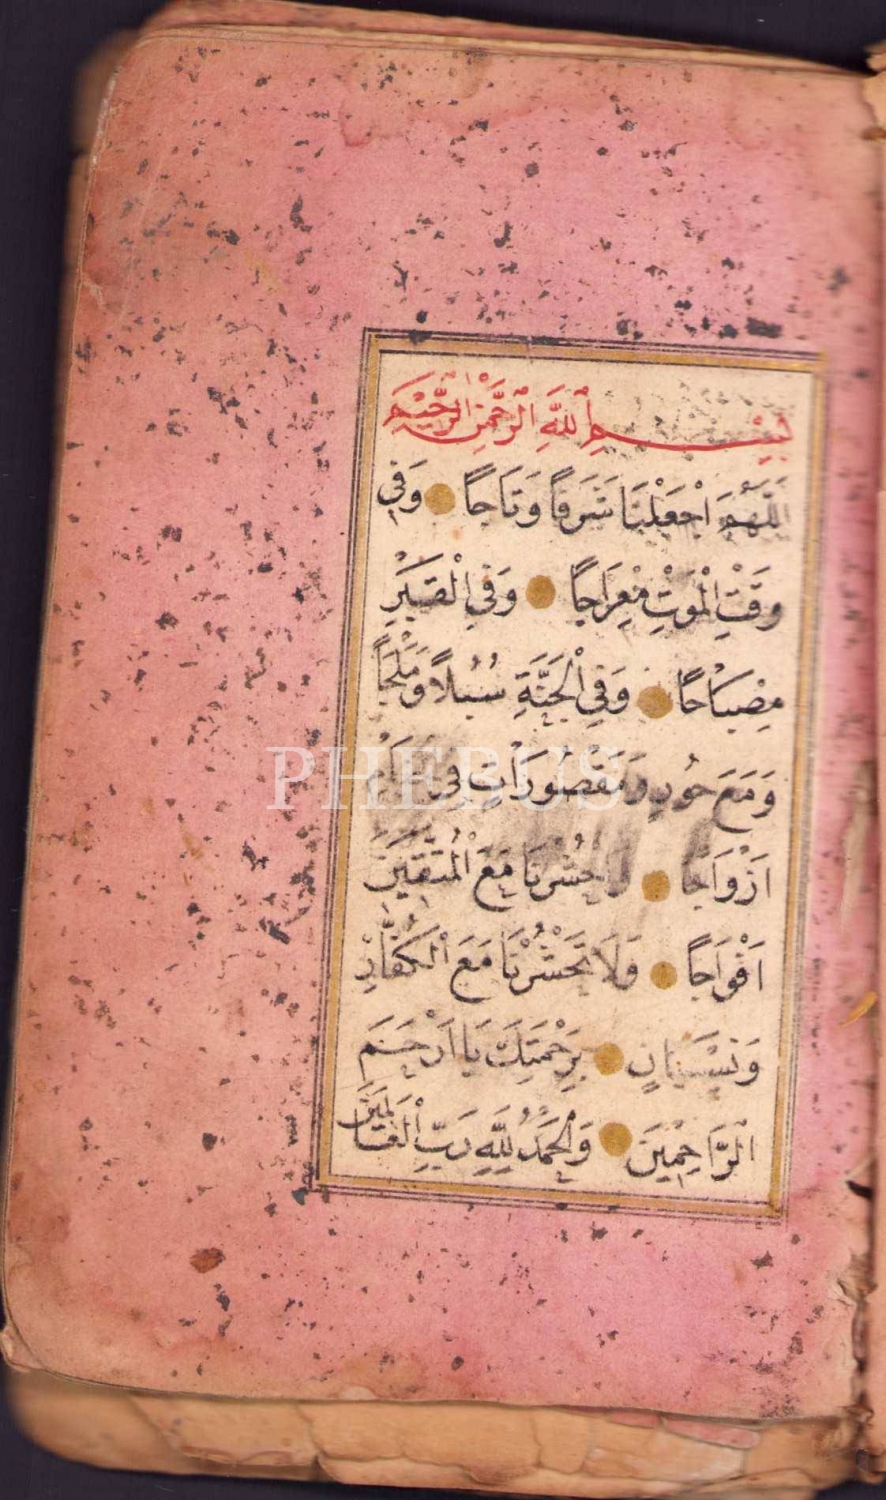 بِسْمِ اللَّهِ الرَّحْمٰنِ الرَّحِيْمِ
اَللّٰهُمَّ اجْعَلْنَا شَرَفًا وَتَاجًا وَفِي
وَقْتِ الْمَوْتِ مِعْرَاجًا وَفِي الْقَبْرِ
مِصْبَاحًا وَفِي الْجَنَّةِ سُبُلًا وَمَلْجَأً
وَمَعَ حُورٍ وَمَقْصُورَاتٍ فِي
اَزْوَاجًا وَاحْشُرْنَا مَعَ الْمُتَّقِيْنَ
اَفْوَاجًا وَلَا تَحْشُرْنَا مَعَ الْكُفَّارِ
بِرَحْمَتِكَ يَا اَرْحَمَ
الرَّاحِمِيْنَ وَالْحَمْدُ لِلّٰهِ رَبِّ الْعَالَمِيْنَ
PHEBUS